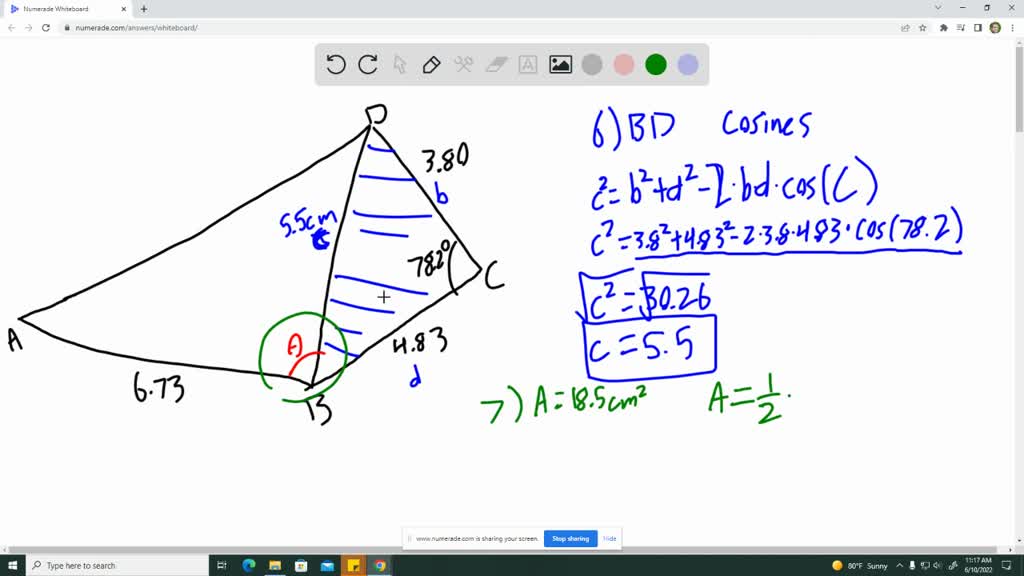 Numerade Whiteboard
numerade.com/answers/whiteboard/
D
3.80
b
5.5cm
c
78.2°
C
A
A
4.83
d
6.73
B
6) BD Cosines
c²=b²+d²-2·bd·cos(C)
c²=3.8²+4.83²-2·3.8·4.83·cos(78.2)
c²=30.26
c=5.5
7) A=18.5cm² A=1/2·
www.numerade.com is sharing your screen. Stop sharing Hide
Type here to search
80°F Sunny
11:17 AM
6/10/2022